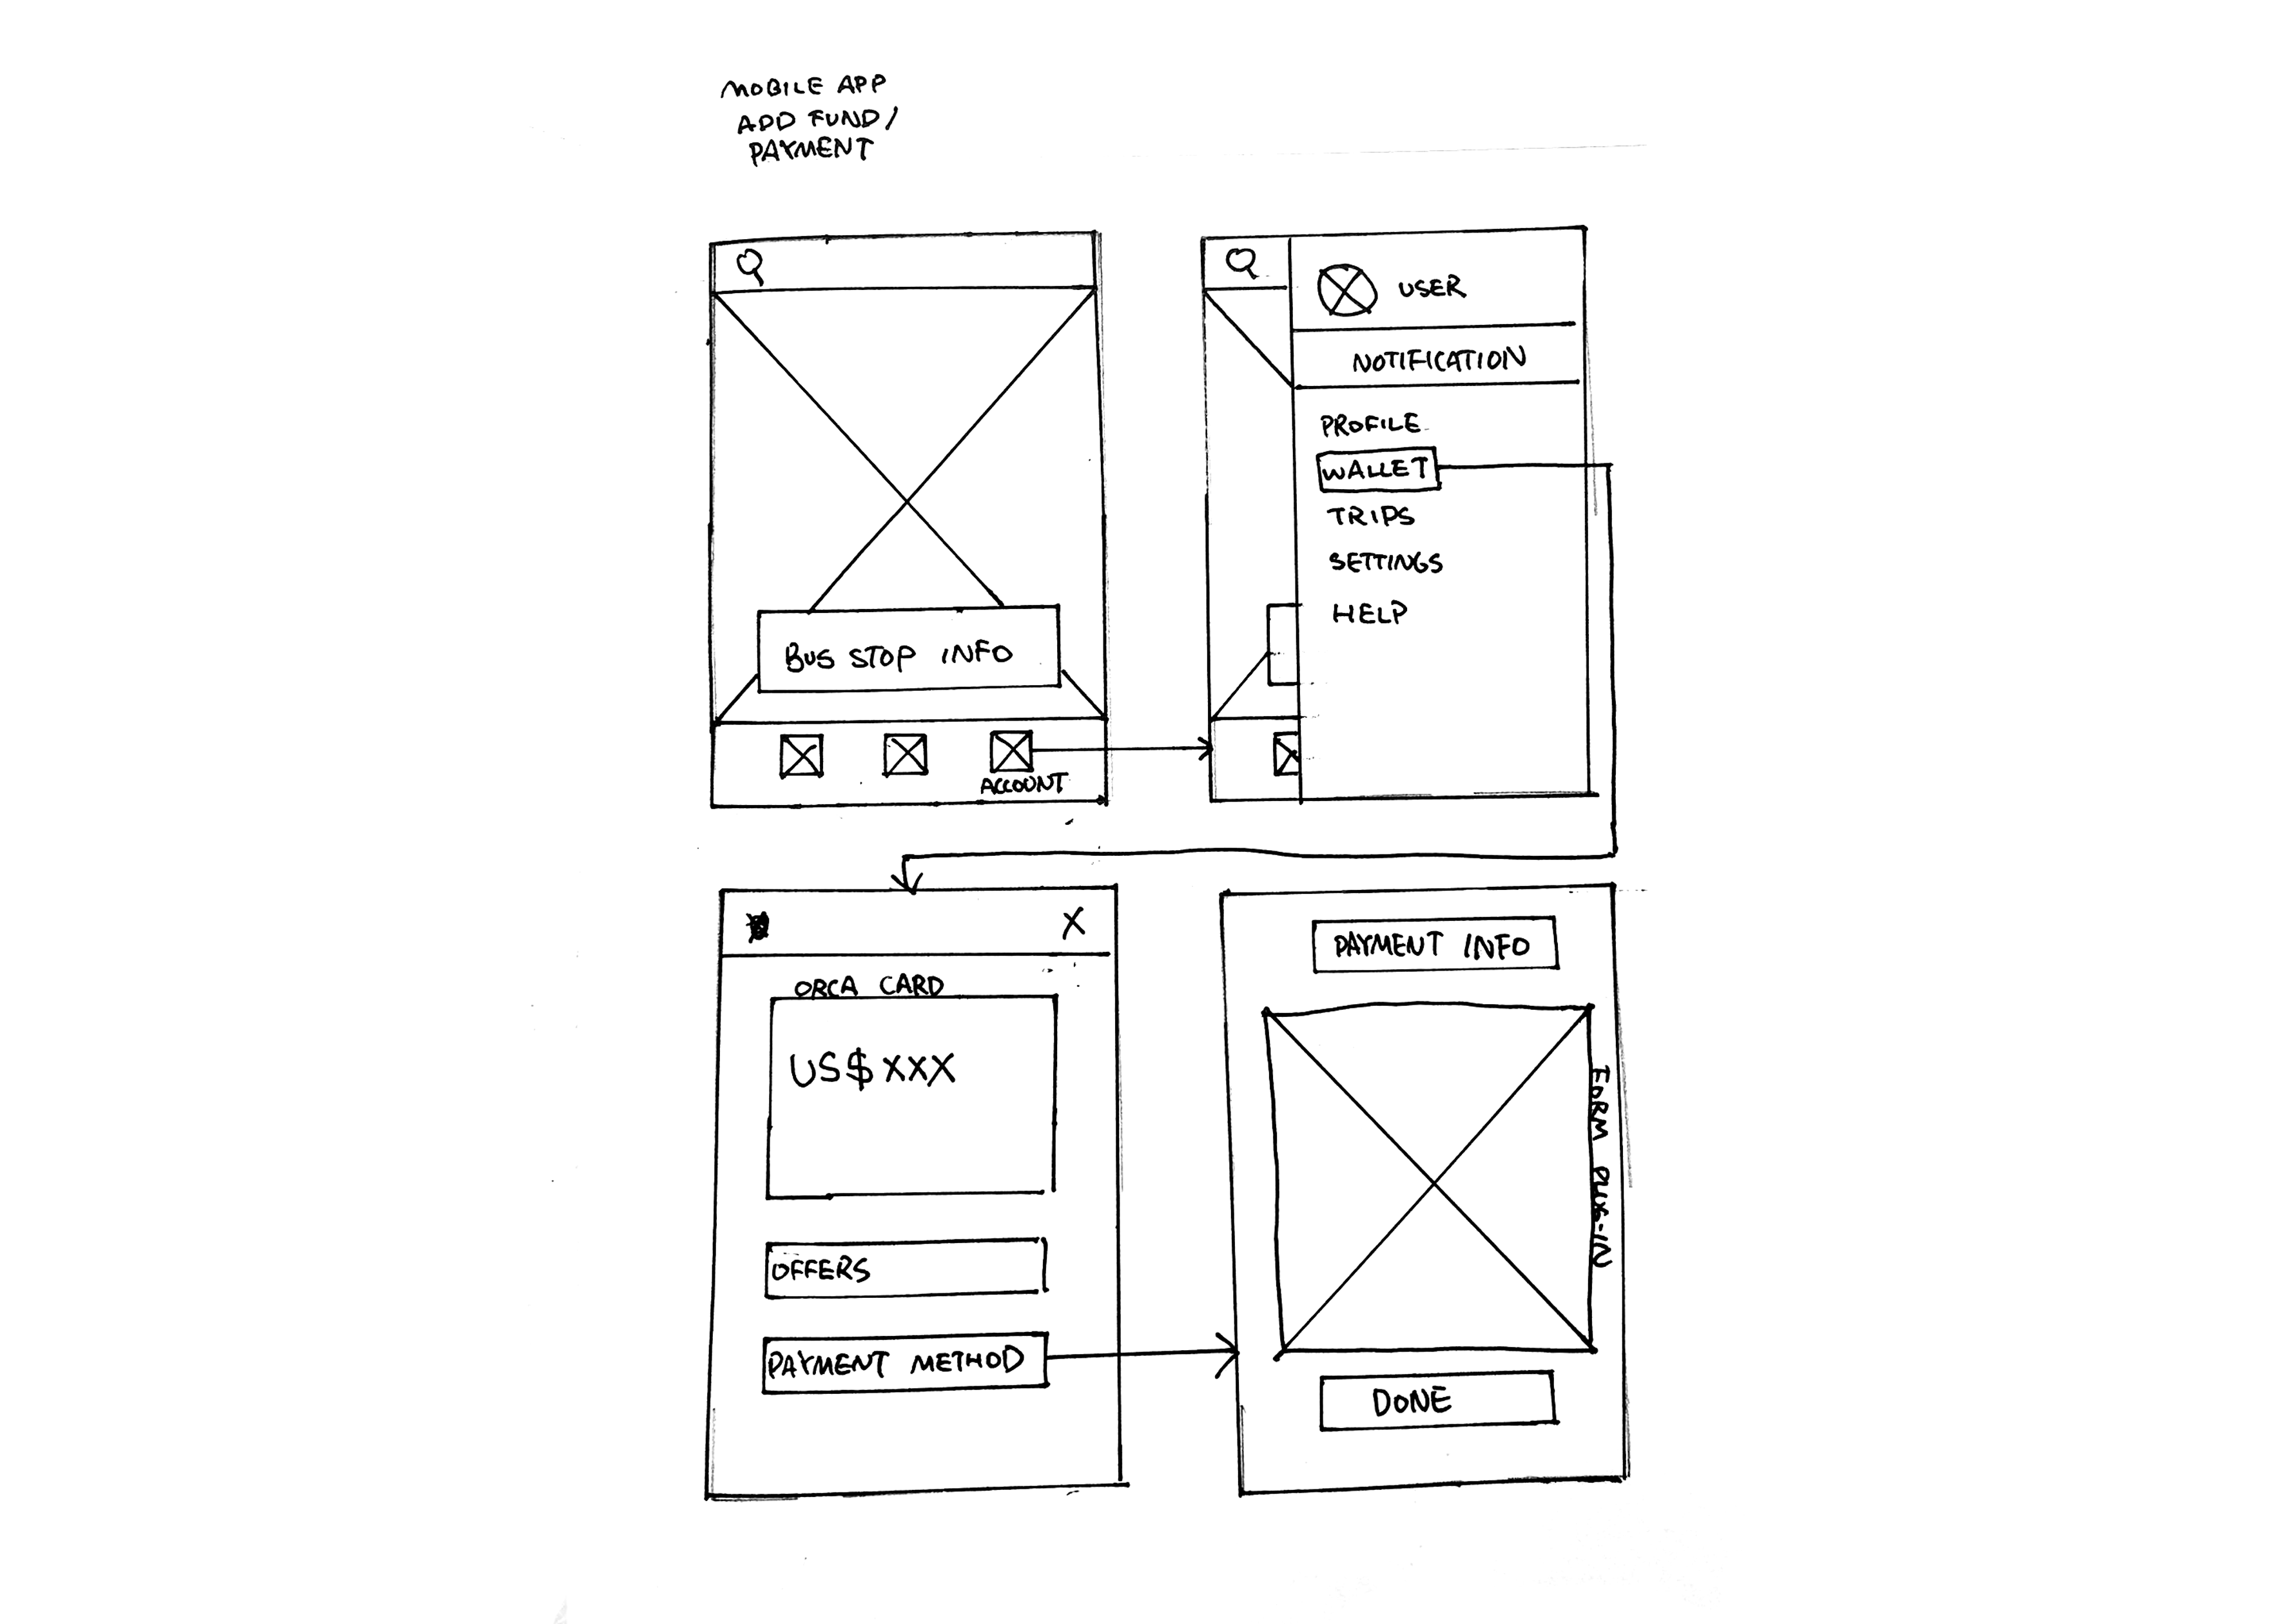 MOBILE APP
ADD FUND/
PAYMENT
BUS STOP INFO
ACCOUNT
USER
NOTIFICATION
PROFILE
WALLET
TRIPS
SETTINGS
HELP
X
ORCA CARD
US$XXX
OFFERS
PAYMENT METHOD
PAYMENT INFO
FORM PLUG-IN
DONE